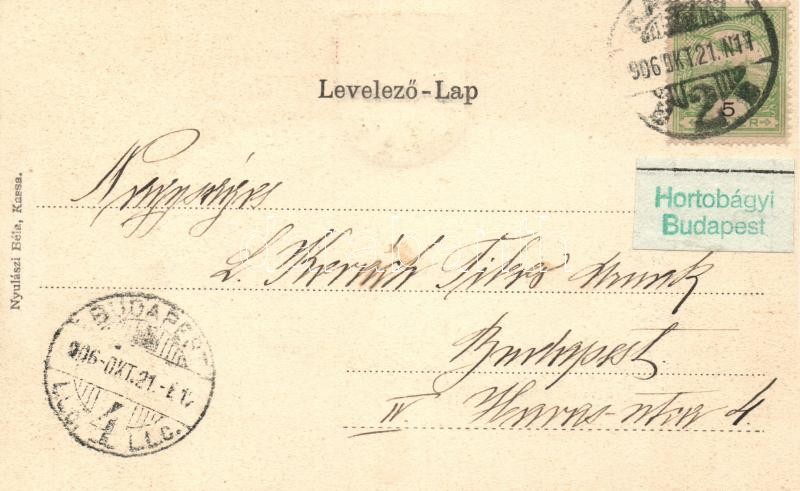 906 OKT. 21. N11
5
Levelező-Lap
Hortobágyi
Budapest
Nagyságos
L. Kovách Titus úrnak
Budapest.
IV Havas-utca 4.
Nyulászi Béla, Kassa.
BUDAPEST
906-OKT. 21.
4